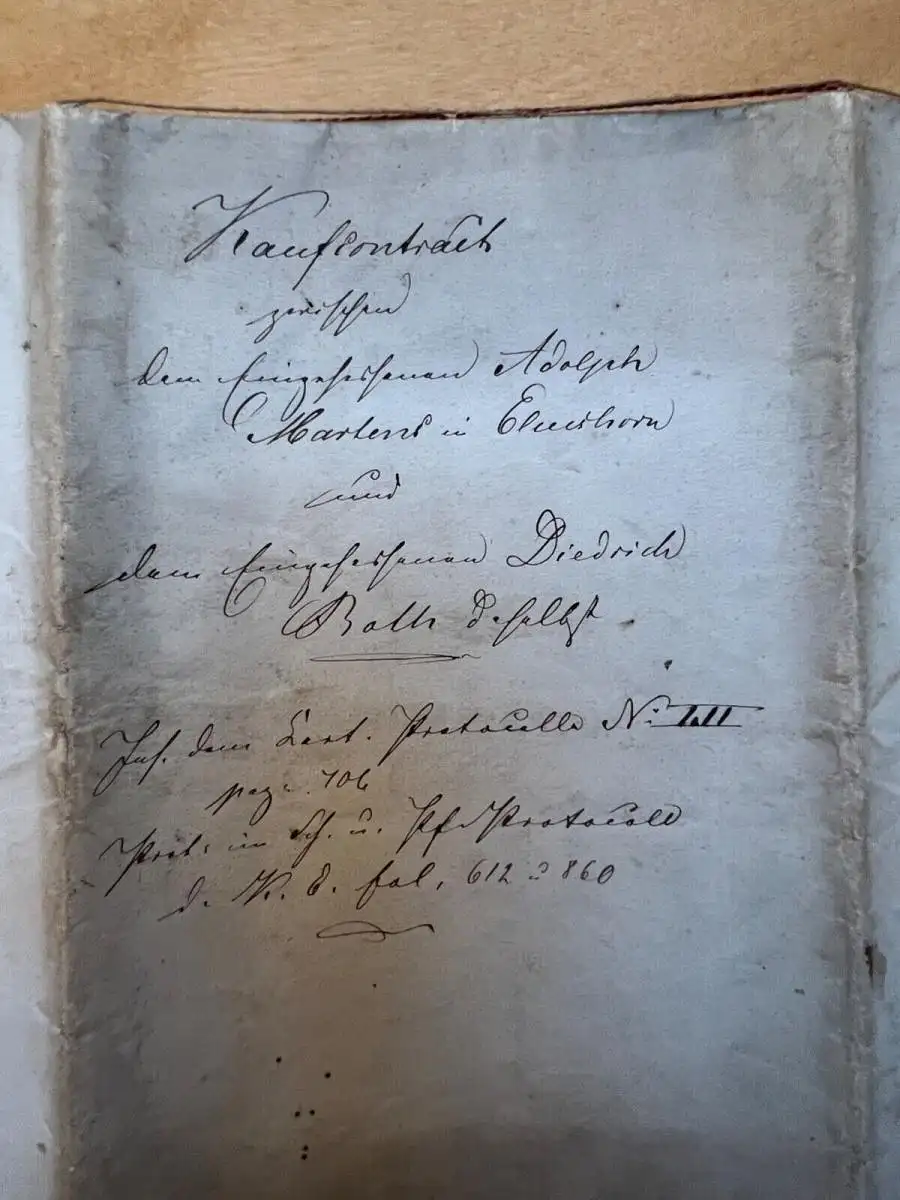 Kaufcontract
zwischen
dem Eingesessenen Adolph
Martens in Elmshorn
und
dem Eingesessenen Diedrich
Roth daselbst
Ins. dem Cont. Protocolle No:
pag. 706
Prot. im Sch. u. Pf. Protocoll
d. K. E. fol. 612 & 860